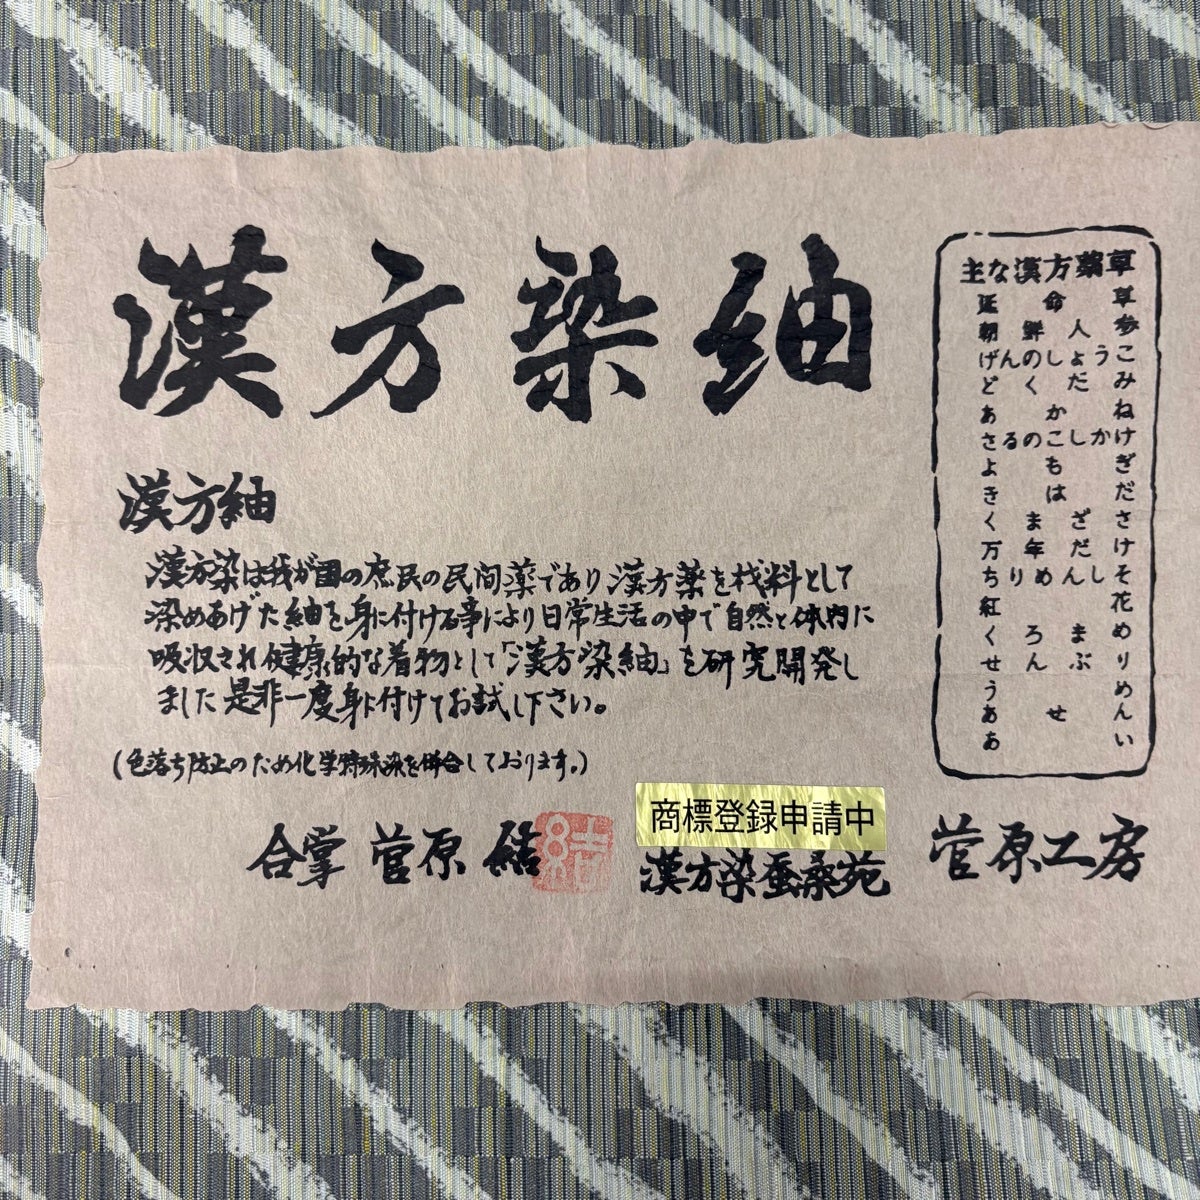 漢方染紬
漢方紬
漢方染は我が国の庶民の民間薬であり漢方薬を材料として
染めあげた紬を身に付ける事により日常生活の中で自然と体内に
吸収され健康的な着物として「漢方染紬」を研究開発し
ました是非一度身に付けてお試し下さい。
(色落ち防止のため化学特殊染を併合しております。)
合掌 菅原 結
商標登録申請中
漢方染蚕桑苑
菅原工房
主な漢方薬草
延命草
朝鮮人参
げんのしょうこ
どくだみ
あかね
さるのこしかけ
よもぎ
きはだ
くまざさ
万年だけ
ちりめんしそ
紅花
くろまめ
せんぶり
うめ
あせん
あい